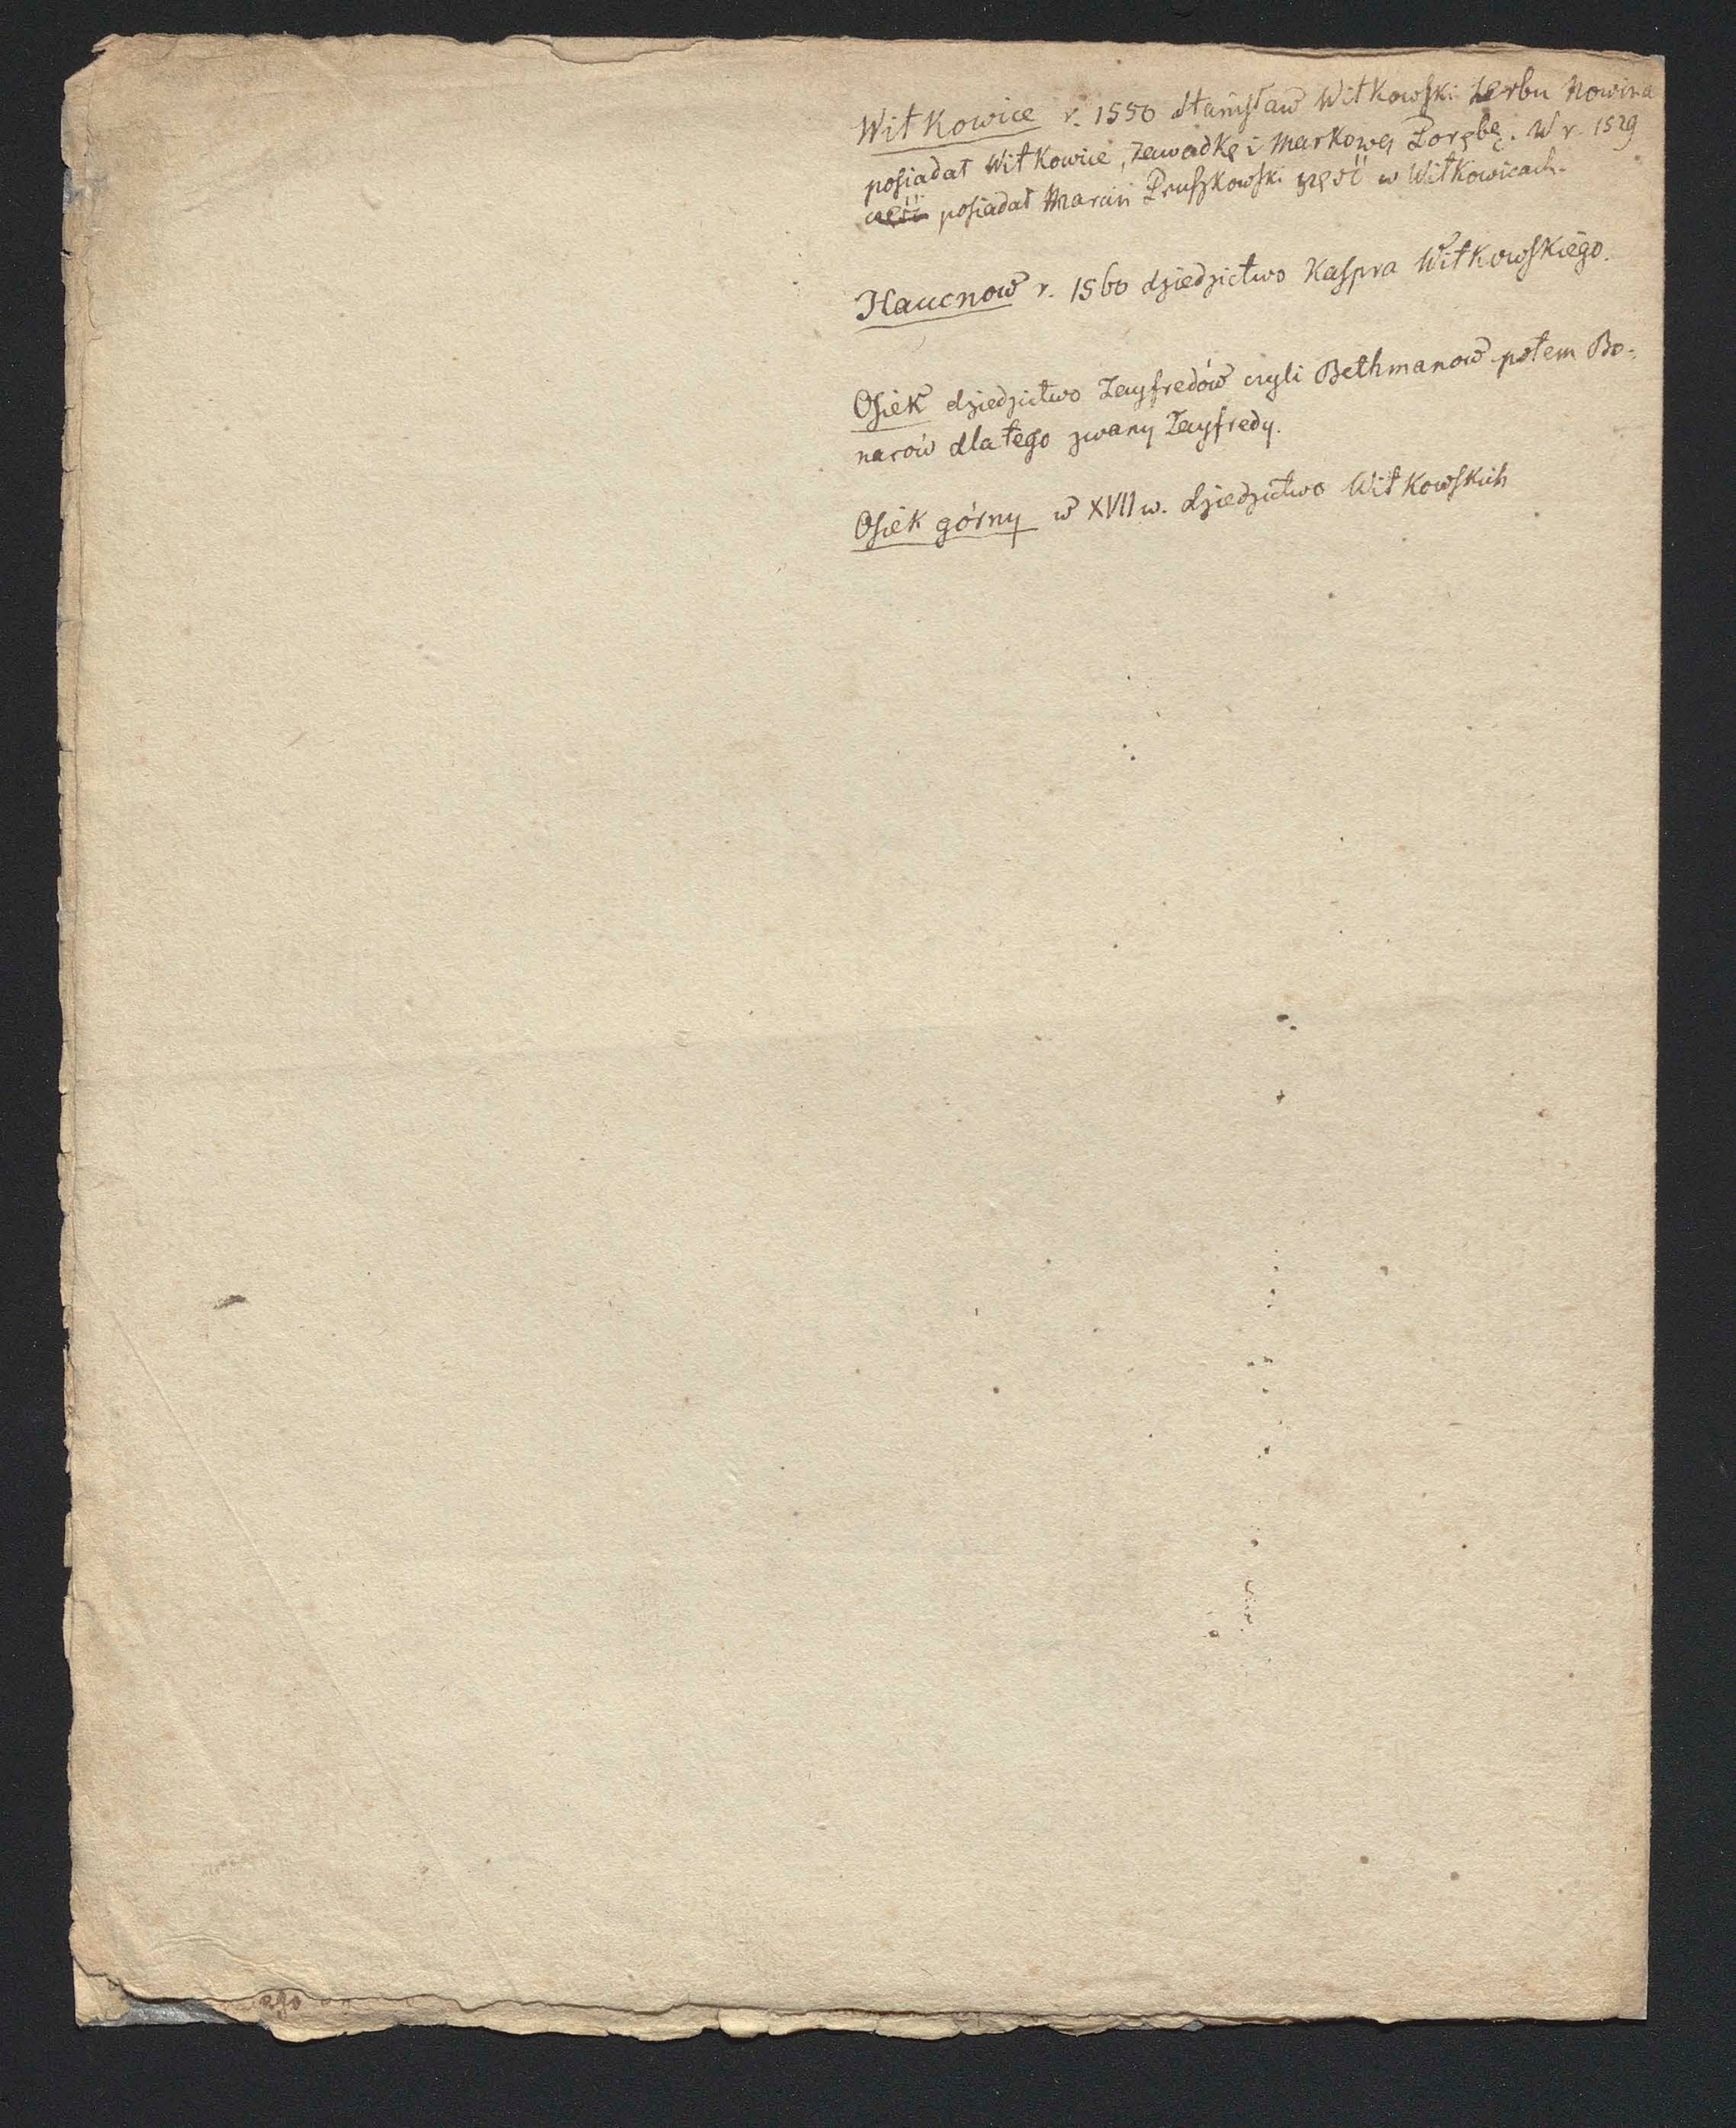 Witkowice r. 1550 Stanisław Witkowski herbu Nowina
posiadał Witkowice, Zawadkę i Markową Porębę. W r. 1529
część posiadał Marcin Pruszkowski część w Witkowicach.
Haucnow r. 1560 dziedzictwo Kaspra Witkowskiego.
Osiek dziedzictwo Zayfredów czyli Bethmanow potem Bo-
narów dla tego zwany Zayfredy.
Osiek górny w XVII w. dziedzictwo Witkowskich